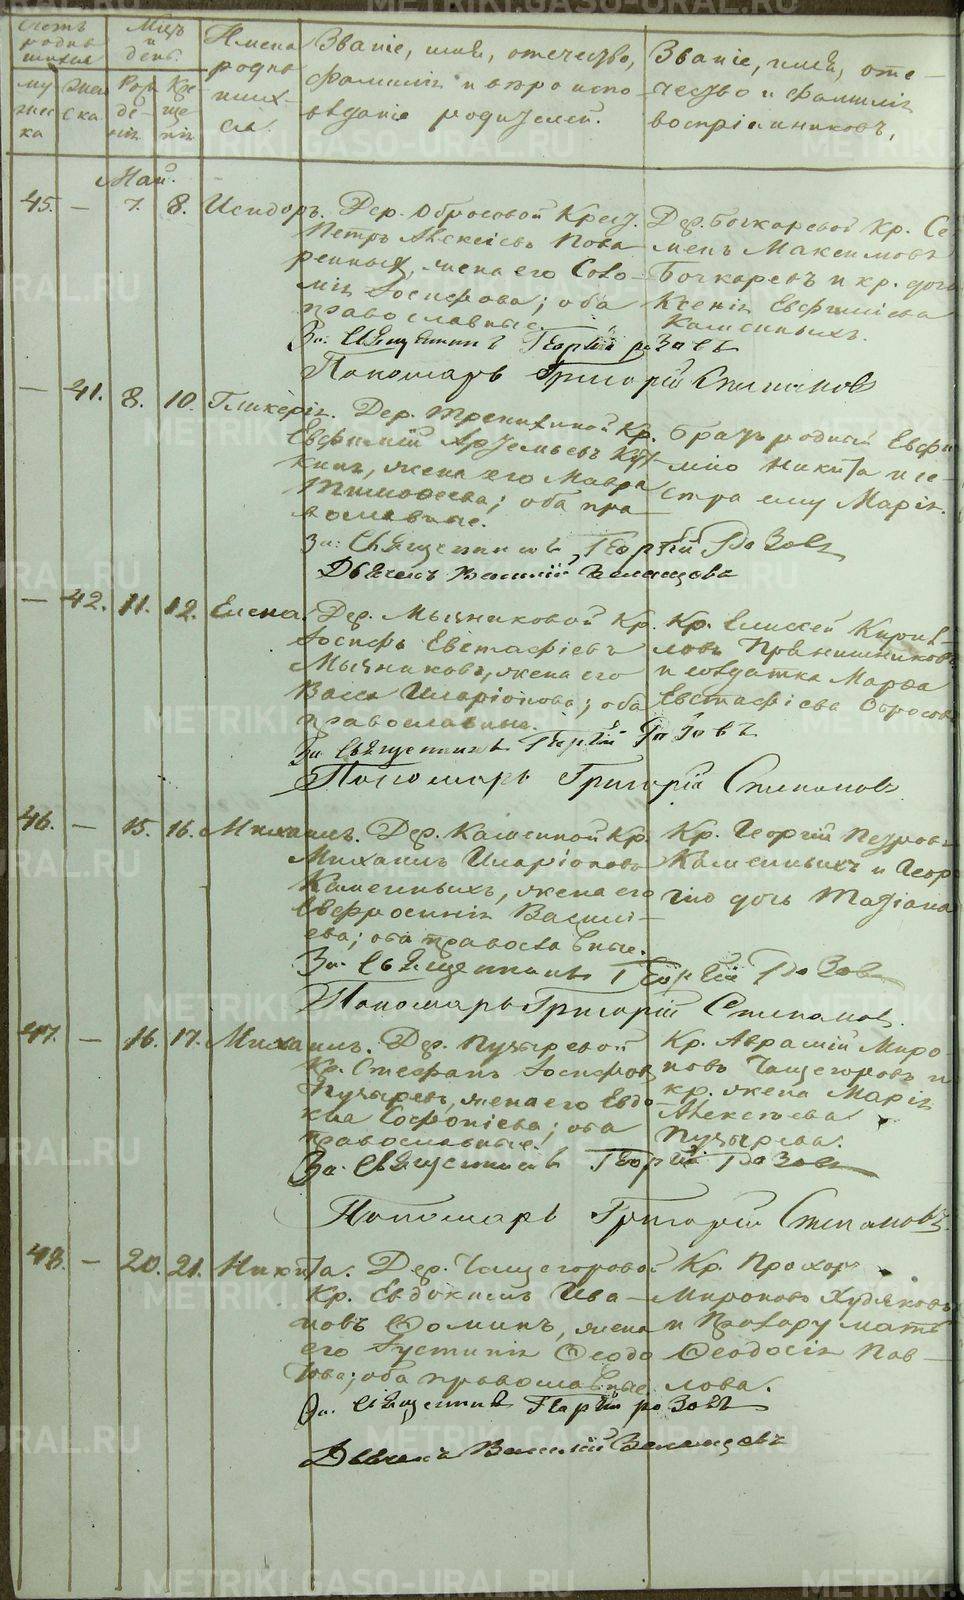 Счетъ родившихся
мужеска
женска
Мцъ и день.
Рож де- нія
Кре ще- нія
Имена родив шихся.
Званіе, имя, отечество,
фамилія и вѣроиспо
вѣданіе родителей.
Званіе, имя, оте-
чество и фамилія
воспріемниковъ,
Май.
45. — 7. 8. Исидоръ. Дер. Обросовой Крест.
Петръ Алексіевъ Пова
ренныхъ, жена его Соло-
мія Іосифова; оба
православные.
Дер. Бочкаревой Кр. Се
менъ Максимовъ
Бочкаревъ и кр. дочь
Ксенія Евфиміева
Каменныхъ.
За Священника Георгій Розовъ
Пономарь Григорій Степановъ
— 41. 8. 10. Гликерія. Дер. Кр.
Евфимій Артемьевъ
кинъ, жена его Мавра
Тимофеева; оба пра
вославные.
Братъ родной Евфи
мію Никита и се-
стра ему Марія.
За Священника, Георгій Розовъ
Дьячекъ Василій
— 42. 11. 12. Елена. Дер. Мыльниковой Кр.
Іосифъ Евстафіевъ
Мыльниковъ, жена его
Васса Иларіонова; оба
православные.
Кр. Елисей Кирил-
ловъ Пряничниковъ
и солдатка Марѳа
Евстафіева Обросова
За Священника Георгій Розовъ
Пономарь Григорій Степановъ
46. — 15. 16. Михаилъ. Дер. Каменной Кр.
Михаилъ Иларіоновъ
Каменныхъ, жена его
Евфросинія Василі-
ева; оба православные.
Кр. Георгій Петровъ
Каменныхъ и Геор
гію дочь Татіана
За Священника Георгій Розовъ
Пономарь Григорій Степановъ.
47. — 16. 17. Михаилъ. Дер. Пузыревой
Кр. Стефанъ Іосифовъ
Пузыревъ, жена его Евдо-
кія Софоніева; оба
православные.
Кр. Аврамій Миро-
новъ Чащегоровъ и
кр. жена Марія
Алексѣева
Пузырева.
За Священника Георгій Розовъ
Пономарь Григорій Степановъ.
48. — 20. 21. Никита. Дер. Чащегоровой
Кр. Евдокимъ Ива-
новъ Ѳоминъ, жена
его Іустинія Ѳеодо
това; оба православные.
Кр. Прохоръ
Мироновъ Худяковъ
и Прохору мать
Ѳеодосія Пав-
лова.
За Священника Георгій Розовъ
Дьячекъ Василій
METRIKI.GASO-URAL.RU